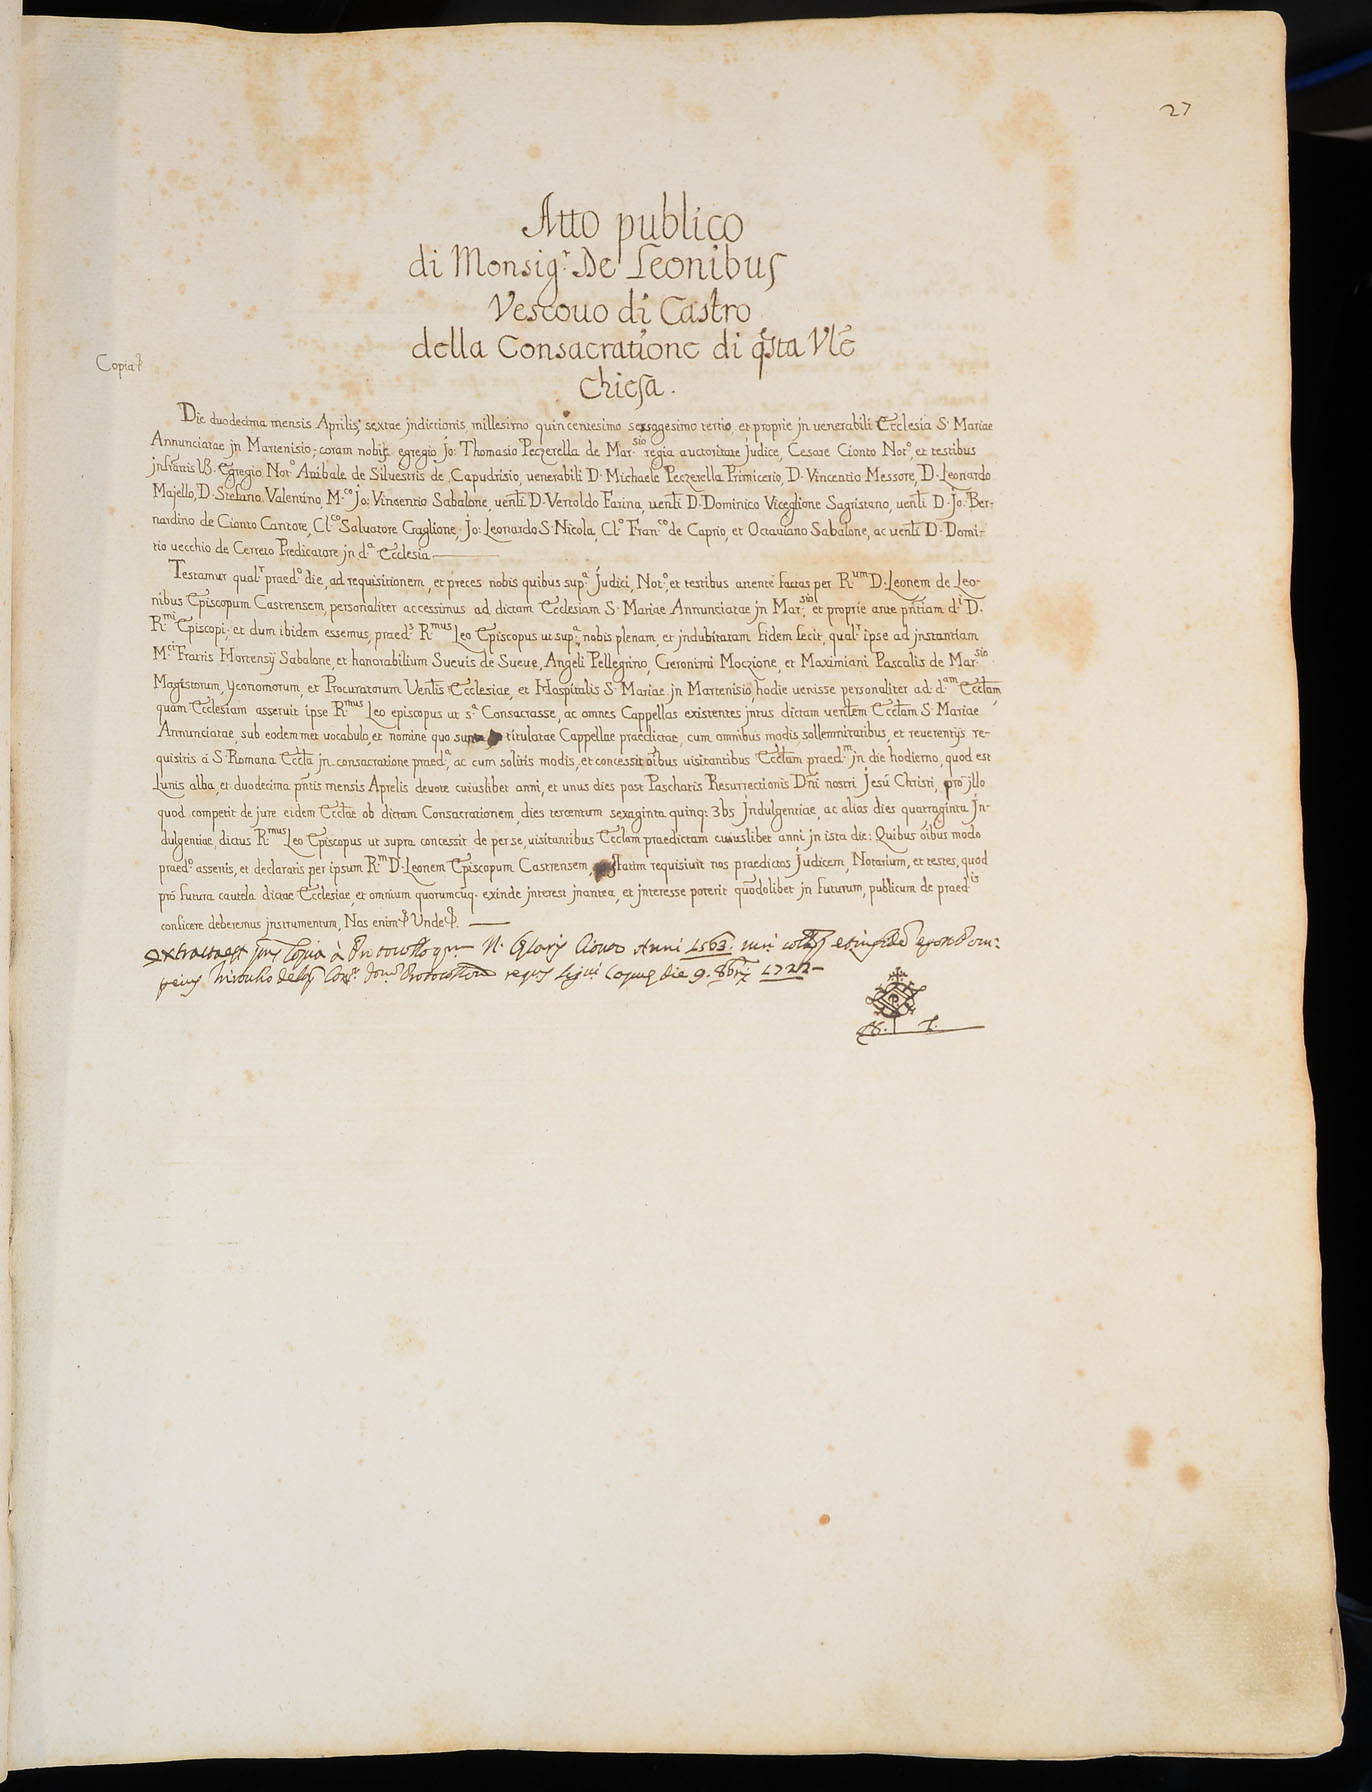 27
Atto publico
di Monsig.r De Leonibus
Vescouo di Castro
della Consacratione di q̃sta Vlẽ
Chiesa.
Copia
Die duodecima mensis Aprilis, sextae jndictionis, millesimo quincentesimo sexsagesimo tertio, et proprie jn uenerabili Ecclesia S. Mariae
Annunciatae jn Martenisio; coram nobis egregio Jo: Thomasio Peczerella de Mar.sio regia auctoritate Judice, Cesare Cionto Not.o, et testibus
jnfr̃ntis Egregio Not.o Anibale de Siluestris de Capudrisio, uenerabili D. Michaele Peczerella Primicerio, D. Vincentio Messore, D. Leonardo
Majello, D. Stefano Valentino, M.co Jo: Vinsentio Sabalone, uenli D. Vertoldo Farina, uenli D. Dominico Viceglione Sagristano, uenli D. Jo: Ber-
nardino de Cionto Cantore, Cl.co Saluatore Graglione, Jo: Leonardo S. Nicola, Cl.o Fran.co de Caprio, et Octauiano Sabalone, ac uenli D. Domi-
tio uecchio de Cerreto Predicatore jn d.a Ecclesia
Testamur qual.r praed.o die, ad requisitionem, et preces nobis quibus sup.a Judici, Not.o, et testibus attente factas per R.um D. Leonem de Leo-
nibus Episcopum Castrensem, personaliter accessimus ad dictam Ecclesiam S. Mariae Annunciatae jn Mar.sio, et proprie ante pñtiam d.i D.
R.mi Episcopi; et dum ibidem essemus, praed.s R.mus Leo Episcopus ut sup.a nobis plenam, et jndubitatam fidem fecit, qual.r ipse ad jnstantiam
M.ci Fratris Hortensij Sabalone, et honorabilium Sueuis de Sueue, Angeli Pellegrino, Geronimi Moczione, et Maximiani Pascalis de Mar.sio
Magistorum, yconomorum, et Procuratorum Ventis Ecclesiae, et Hospitalis S. Mariae jn Martenisio, hodie uenisse personaliter ad d.am Eccłam,
quam Ecclesiam asseruit ipse R.mus Leo episcopus ut s.a Consacrasse, ac omnes Cappellas existentes jntus dictam uentem Eccłam S. Mariae
Annunciatae, sub eodem met uocabulo, et nomine quo supra titulatae Cappellae praedictae, cum omnibus modis sollemnitatibus, et reuerentijs re-
quisitis á S. Romana Eccła jn consacratione praed.a, ac cum solitis modis, et concessit oĩbus uisitantibus Eccłam praed.m jn die hodierno, quod est
Lunis alba, et duodecima pñtis mensis Aprelis deuote cuiuslibet anni, et unus dies post Paschatis Resurrectionis Dñi nostri Jesú Christi, prõ jllo
quod competit de jure eidem Eccłae ob dictam Consacrationem, dies tercentum sexaginta quinq: 3bs jndulgentiae, ac alios dies quatraginta Jn-
dulgentiae, dictus R.mus Leo Episcopus ut supra concessit de per se, uisitantibus Eccłam praedictam cuiuslibet anni jn ista die: Quibus oĩbus modo
praed.o assertis, et declaratis per ipsum R.m D. Leonem Episcopum Castrensem, statim requisiuit nos praedictos Judicem, Notarium, et testes, quod
prõ futura cautela dictae Ecclesiae, et omnium quorumcũq. exinde jnterest jnantea, et jnteresse poterit quõdolibet jn futurum, publicum de praed.is
conficere deberemus jnstrumentum, Nos enim Unde
extracta est Copia à Protocollo N. Anni 1563.
die 9. 8bris 1722